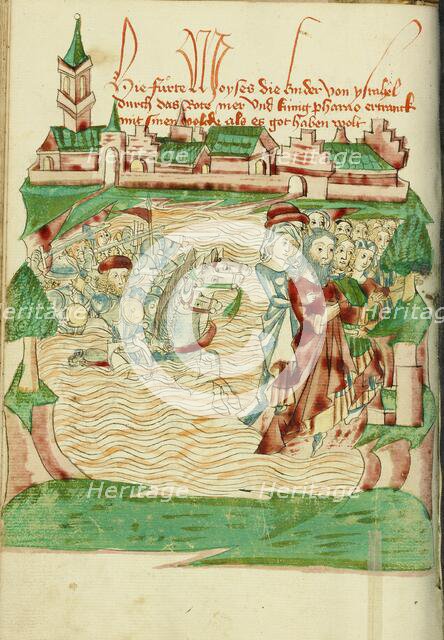 Hie fürte Moyses die kinder von ysrahel
durch das Rote mer und künig pharao ertranck
mit sinem volcke als es got haben wolt
Heritage Heritage Heritage
Heritage Heritage Heritage
Heritage Heritage Heritage